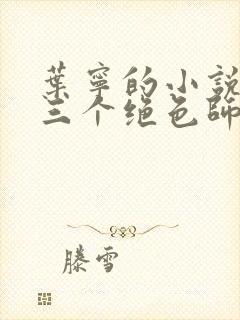 葉寧的小說
三个绝色師
滕雪